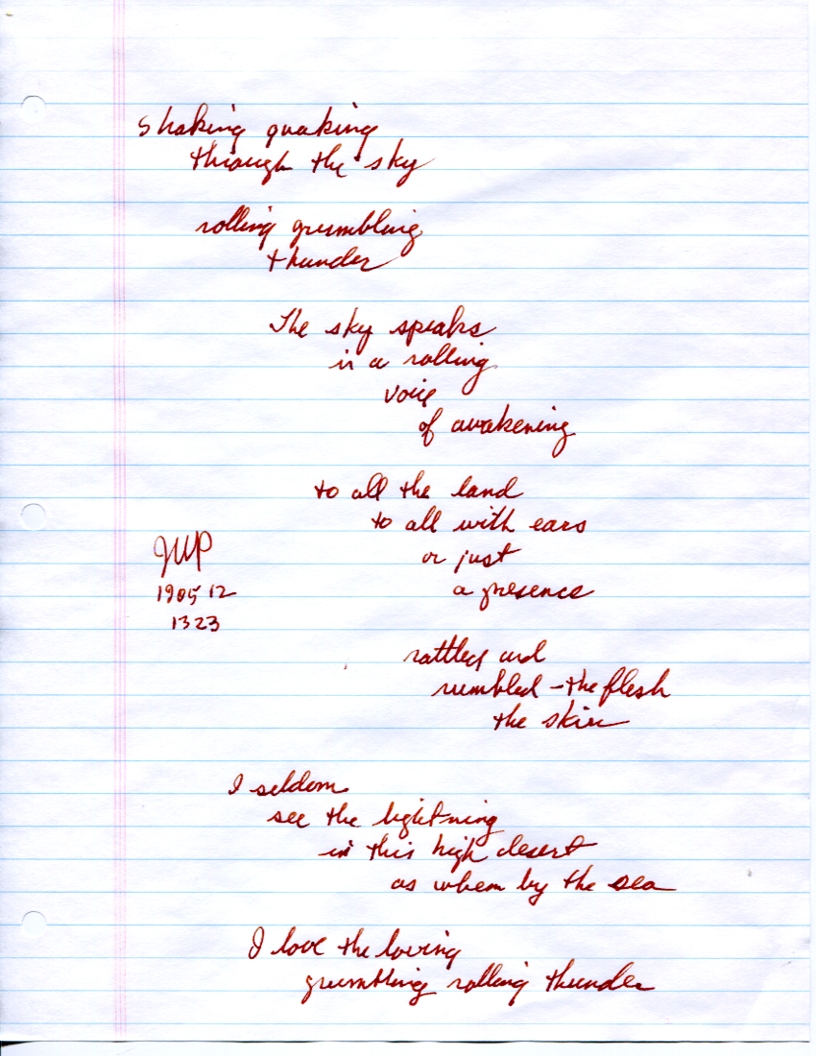 shaking quaking
through the sky
rolling grumbling
thunder
The sky speaks
in a rolling
voice
of awakening
to all the land
to all with ears
or just
a presence
JWP
190512
1323
rattled and
rumbled - the flesh
the skin
I seldom
see the lightning
in this high desert
as when by the sea
I love the loving
grumbling rolling thunder